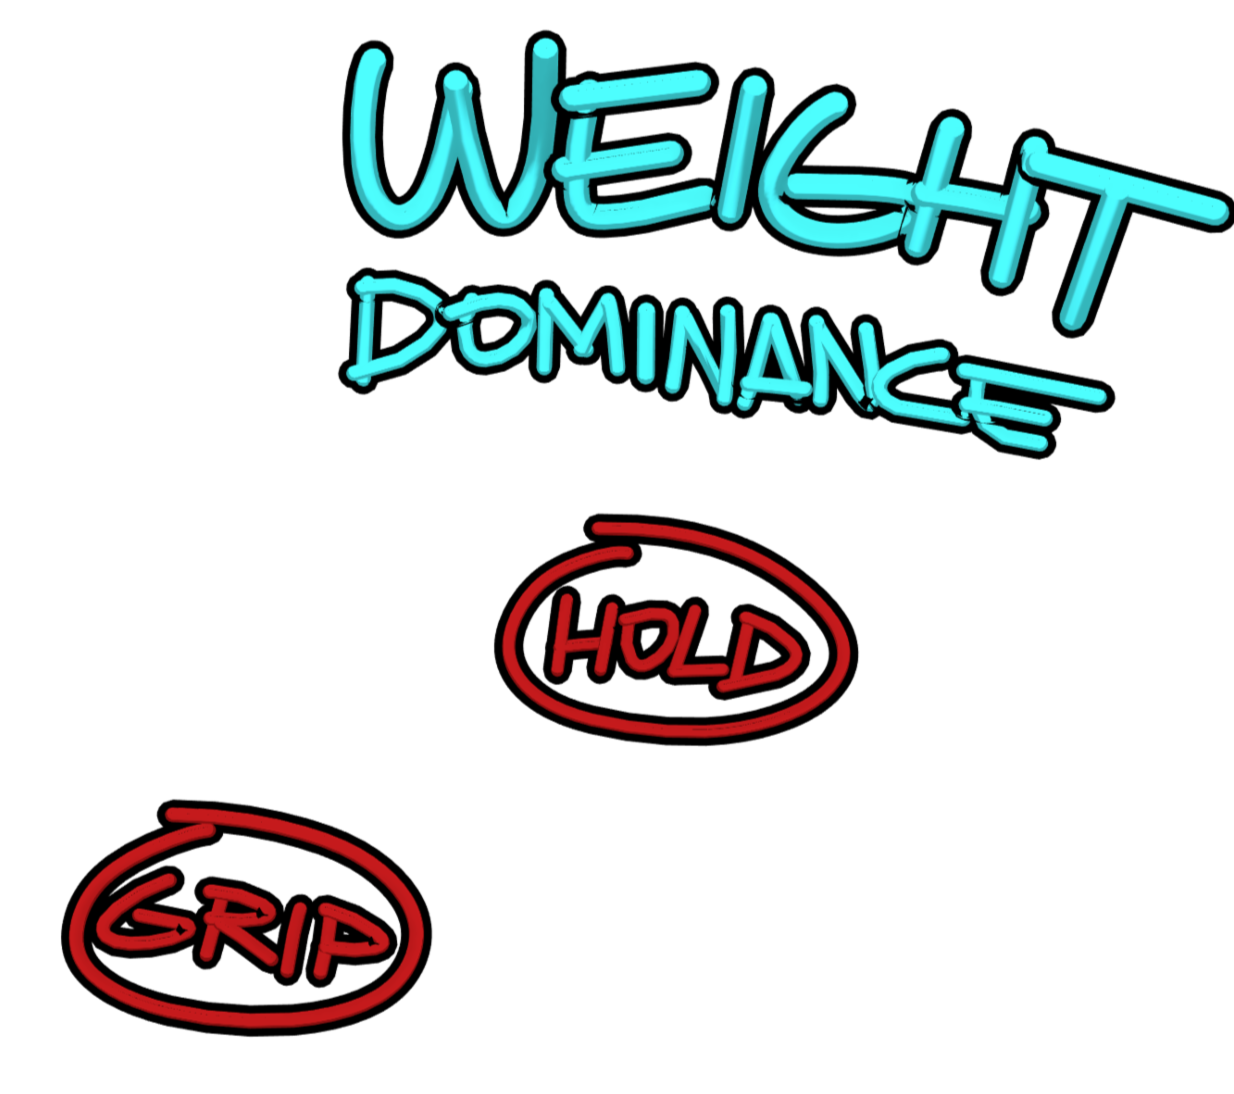 WEIGHT
DOMINANCE
HOLD
GRIP